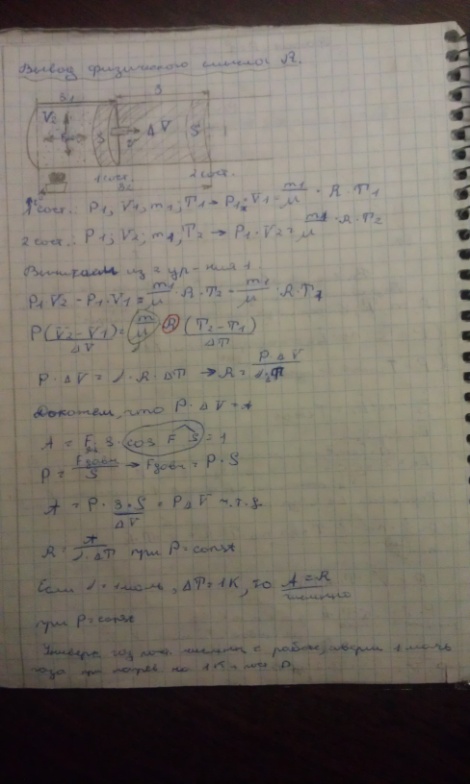 Вывод физического смысла R.
S
V₂ S ΔV S
1 сост. 2 сост.
1 сост.: P₁, V₁, m₁, T₁ → P₁·V₁ = m₁/μ · R · T₁
2 сост.: P₁, V₂, m₁, T₂ → P₁·V₂ = m₁/μ · R · T₂
Вычитаем из 2 ур-ния 1.
P₁V₂ - P₁·V₁ = m₁/μ · R · T₂ - m₁/μ · R · T₁
P(V₂-V₁) = m/μ R (T₂-T₁)
ΔV ΔT
P·ΔV = ν·R·ΔT → R = P·ΔV/ν·ΔT
Докажем, что P·ΔV = A
A = F·S·cos F S = 1
P = Fдавл/S → Fдавл = P·S
A = P·S·S = PΔV ч.т.д.
ΔV
R = A/ν·ΔT при P = const
Если ν = 1 моль, ΔT = 1K, то A = R
численно
при P = const
газ численно работе 1 моль
газа при нагрев. на 1К